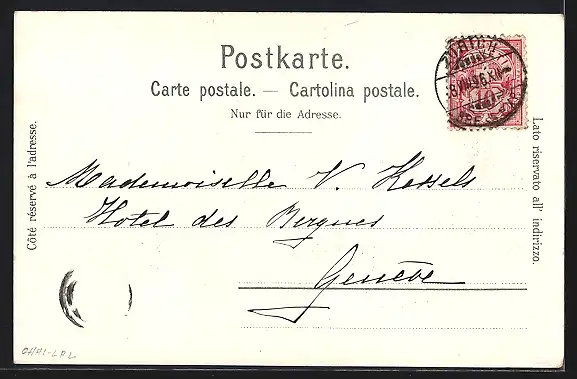 Postkarte.
Carte postale. — Cartolina postale.
Nur für die Adresse.
Côté réservé à l'adresse.
Lato riservato all' indirizzo.
ZÜRICH
10
Mademoiselle V. Kessels
Hotel des Bergues
Genève